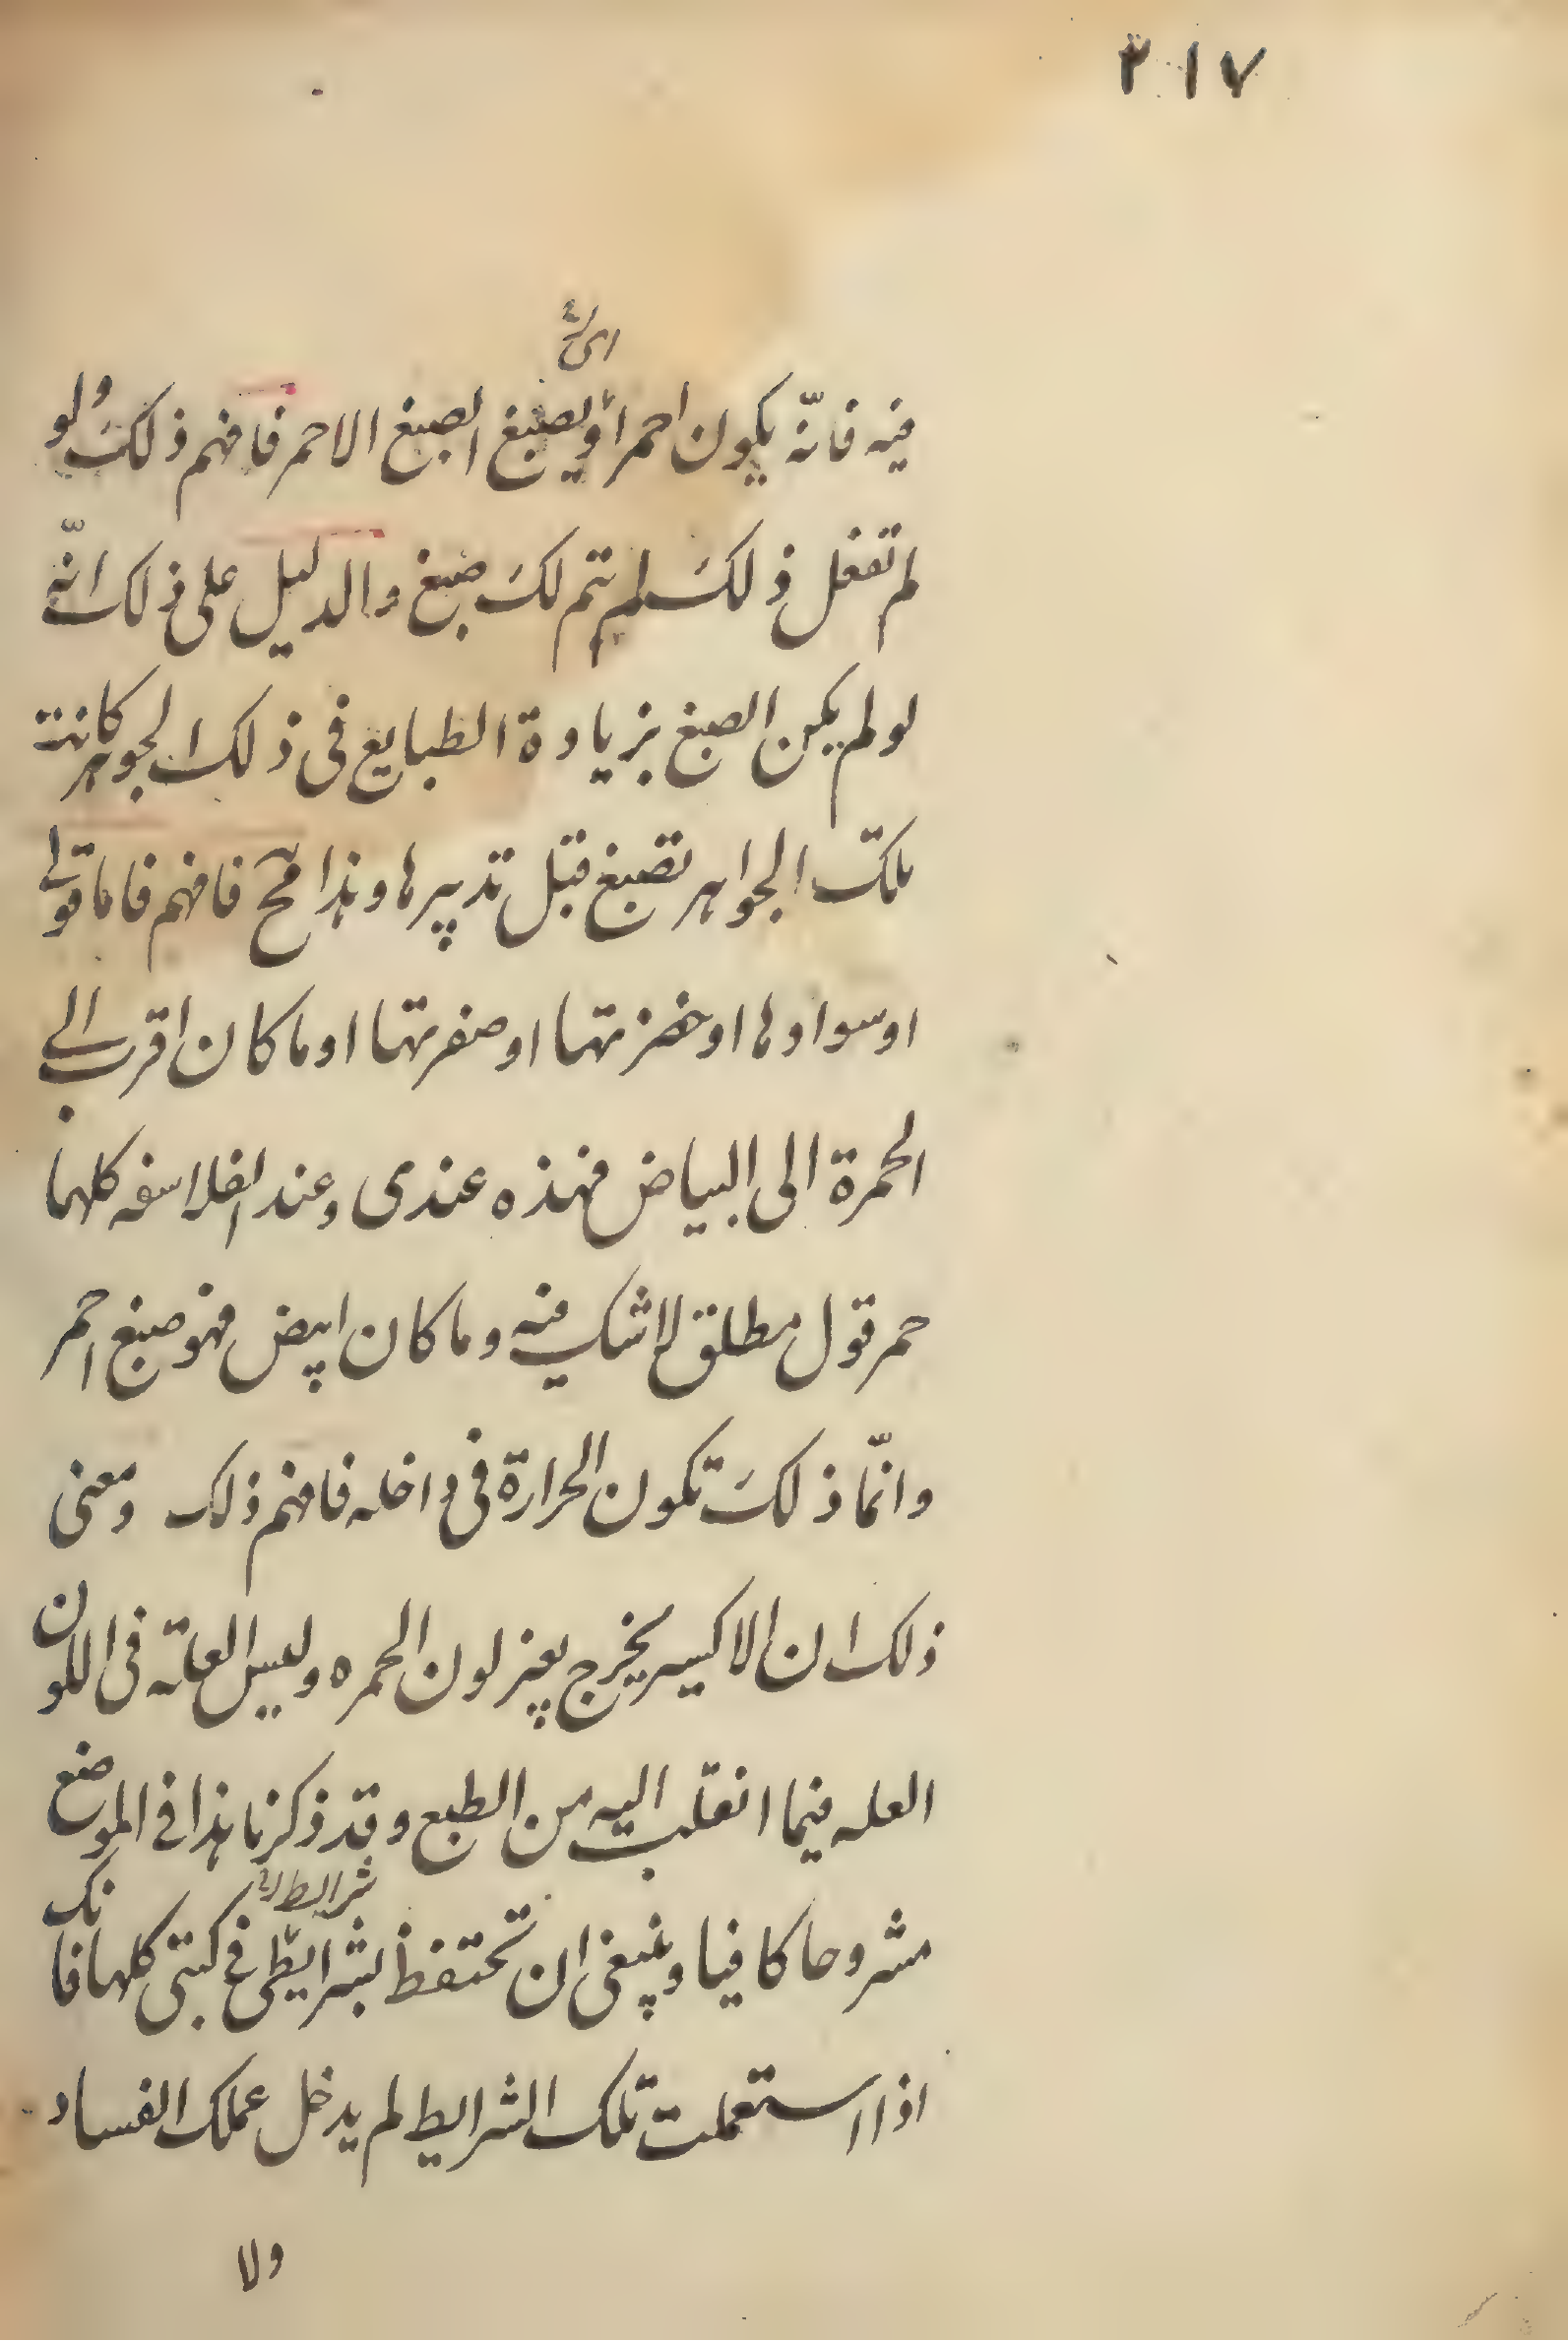 ٣١٧
اى
فيه فانّه يكون احمر او يصبغ الصبغ الاحمر فافهم ذلك ولو
لم تفعل ذلك لم يتم لك صبغ والدليل على ذلك انّه
لو لم يكن الصبغ بزيادة الطبايع فى ذلك الجوهر كانت
تلك الجواهر تصبغ قبل تدبيرها وهذا مح فافهم فاما قولى
او سوادها او خضرتها او صفرتها او ما كان اقرب الى
الحمرة الى البياض فهذه عندى وعند الفلاسفه كلهما
حمر قول مطلق لا شك فيه وما كان ابيض فهو صبغ احمر
وانّما ذلك تكون الحرارة فى داخله فافهم ذلك ومعنى
ذلك ان الاكسير يخرج بغير لون الحمره وليس العلّة فى اللون
العله فيما انقلب اليه من الطبع وقد ذكرنا هذا فى الموضع
شرايط
مشروحا كافيا وينبغى ان تحتفظ بشرايطى فى كتبى كلها فانك
اذا استعملت تلك الشرايط لم يدخل عملك الفساد
ولا